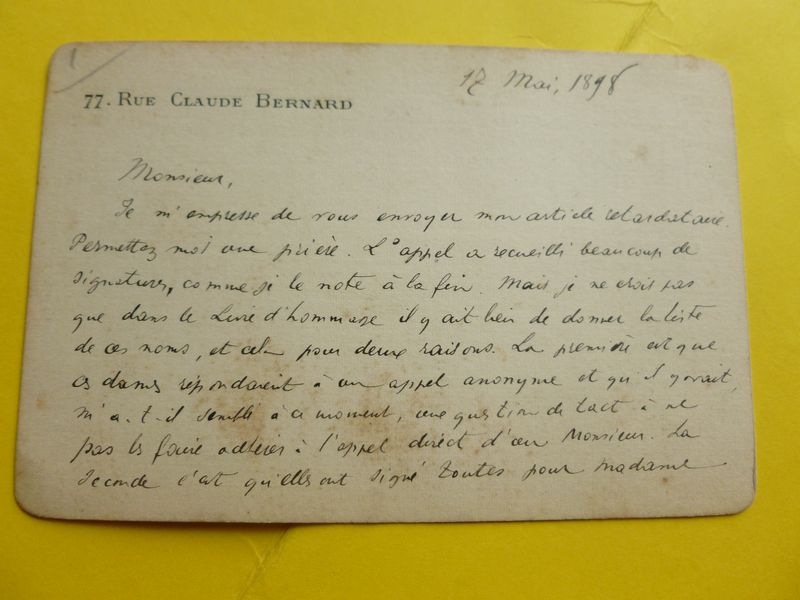 17 Mai, 1898
77. RUE CLAUDE BERNARD
Monsieur,
Je m'empresse de vous envoyer mon article retardataire.
Permettez moi une prière. L'appel a recueilli beaucoup de
signatures, comme je le note à la fin. Mais je ne crois pas
que dans le Livre d'hommage il y ait lieu de donner la liste
de ces noms, et cela pour deux raisons. La première est que
ces dames répondaient à un appel anonyme et qu'il y avait,
m'a-t-il semblé à ce moment, une question de tact à ne
pas les faire adhérer à l'appel direct d'un Monsieur. La
seconde c'est qu'elles ont signé toutes pour Madame